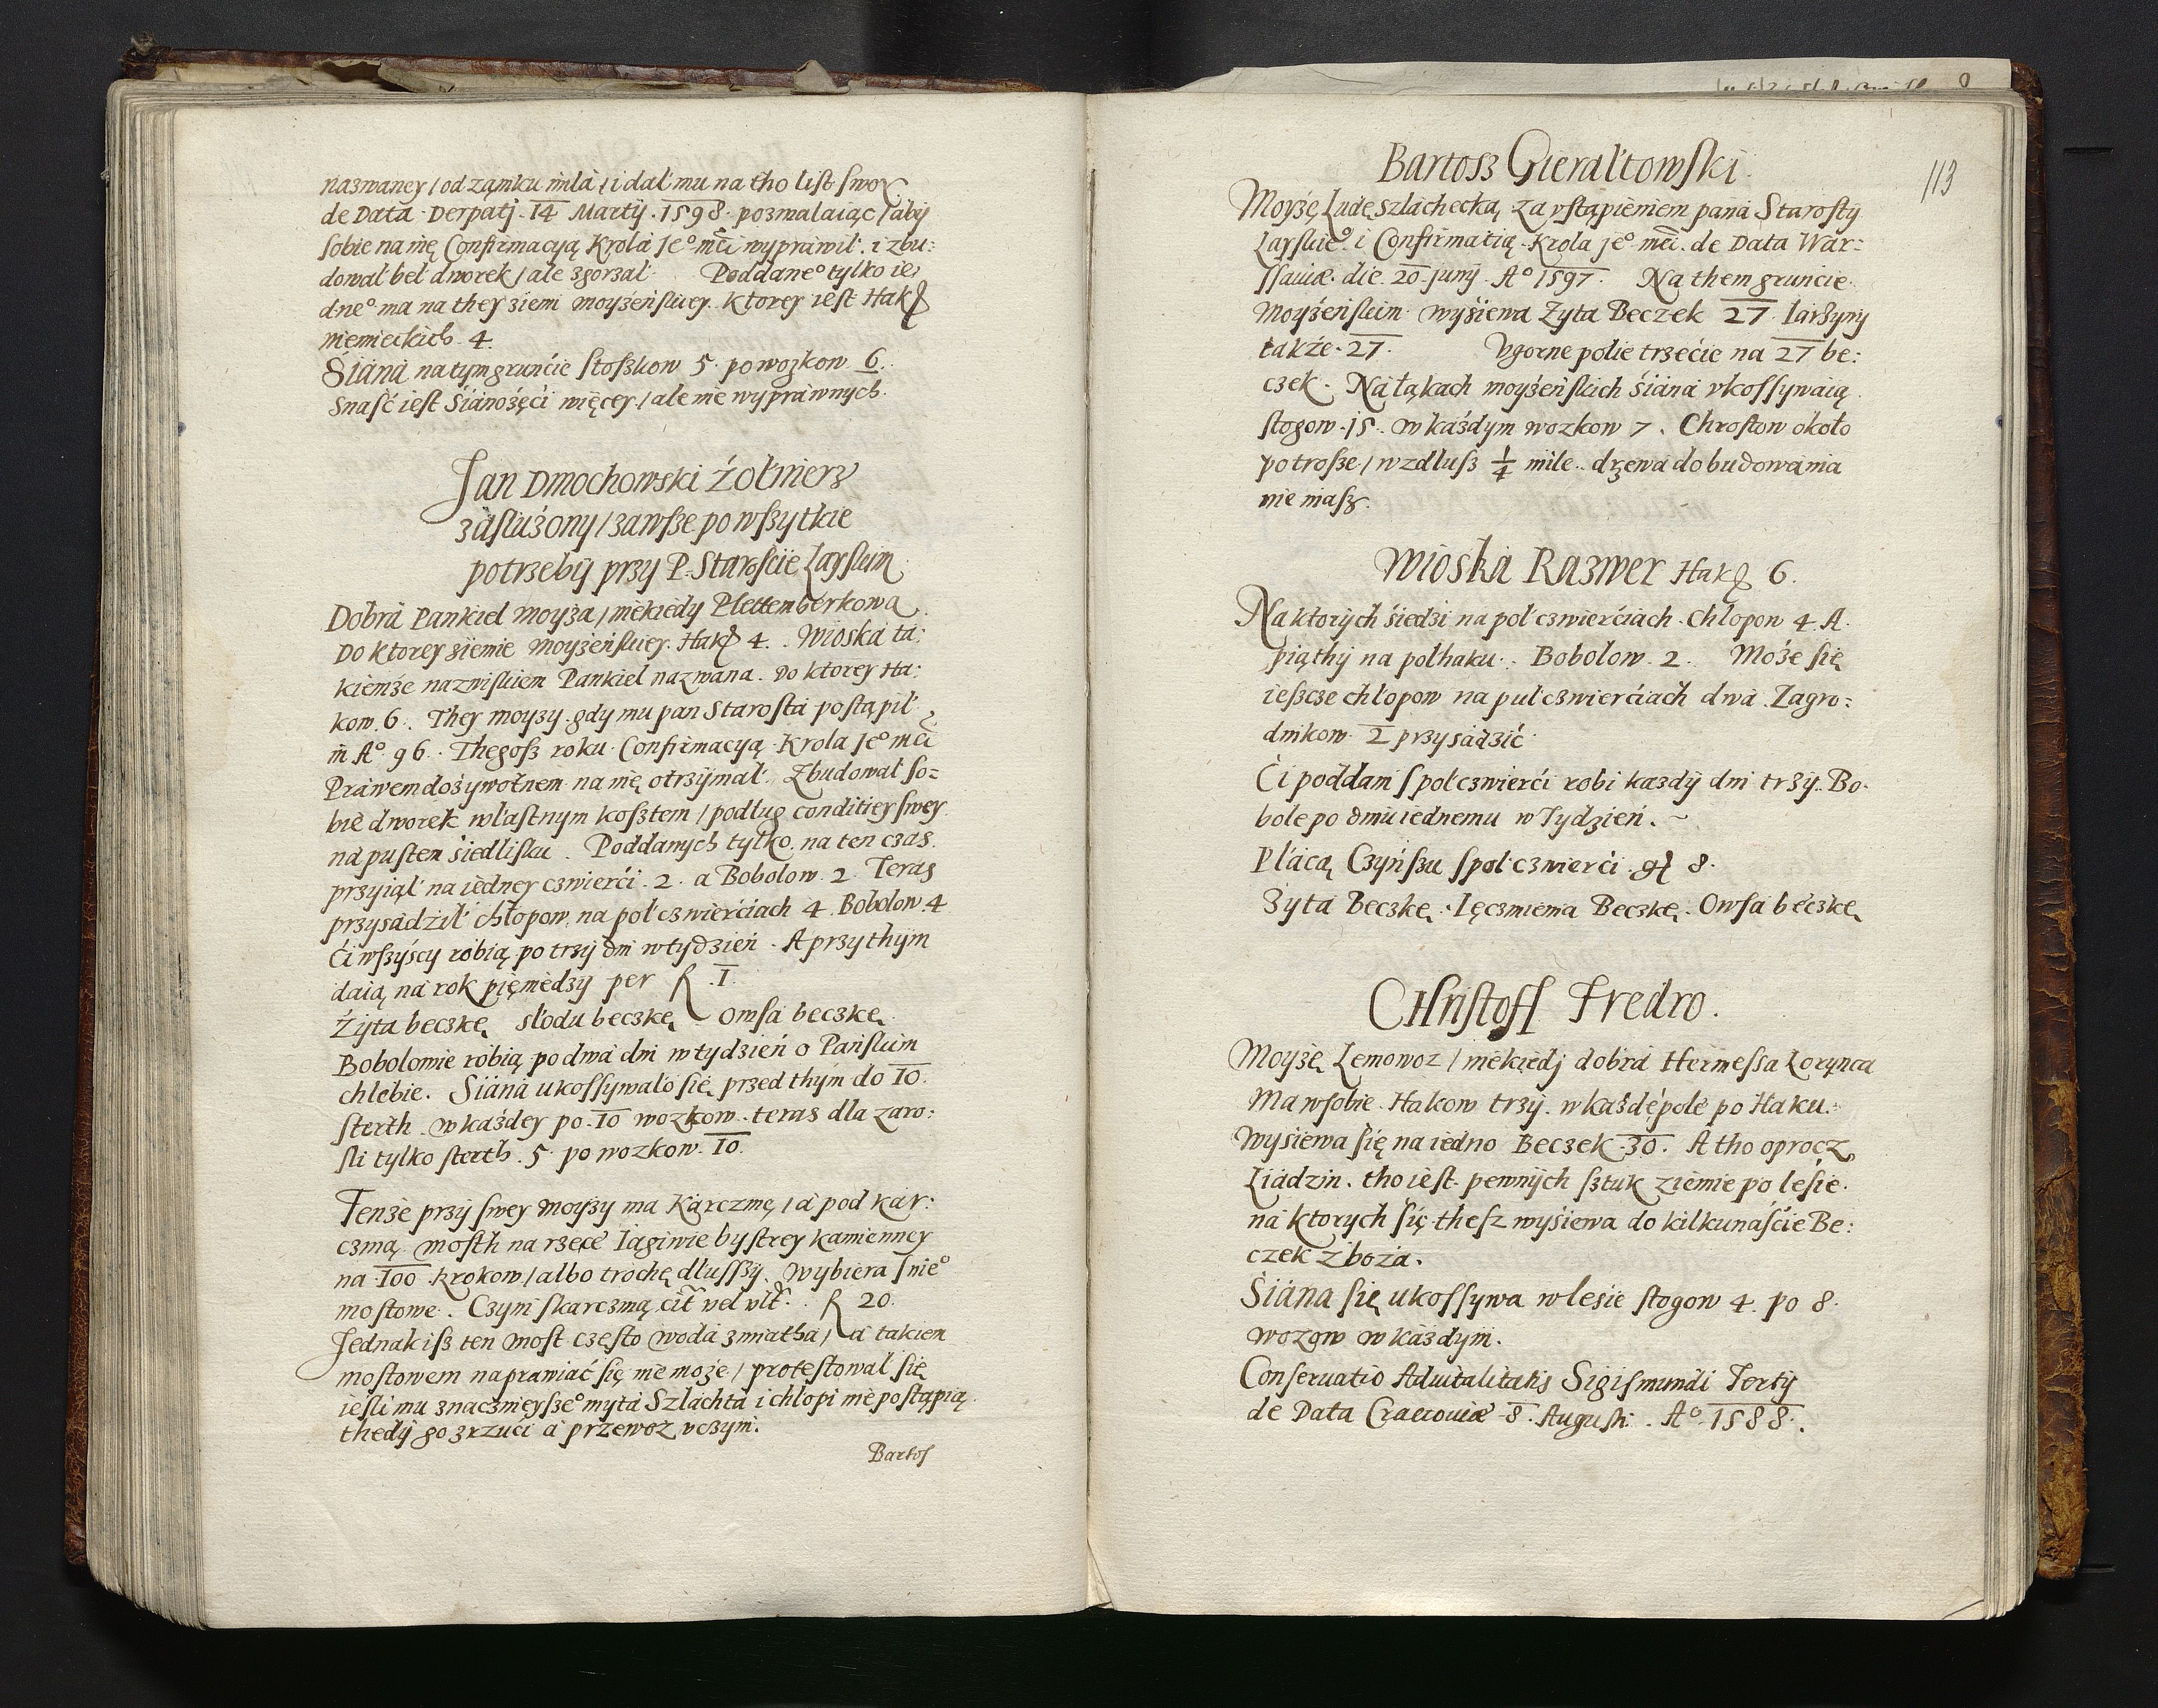 nazwaney / od zamku mila / i dał mu na tho list swoy
de Data Derpati 14 Martij 1598 pozwalaiąc / aby
sobie na nię Confirmacyą Krola Je° mći wyprawił. i zbu:
dował beł dworek / ale zgorzał. Poddane° tylko ie,
dne° ma na they ziemi moyzeńskiey. ktorey iest Hak
niemieckich 4.
Siana na tym gruńcie stoszkow 5. po wozkow 6.
Snaść iest Sianożęći więcey / ale nie wyprawnych.
Jan Dmochowski żołnierz
zasłużony / zawsze po wszytkie
potrzeby przy P. Starośćie Laysskim
Dobra Pankiel moyza / niekiedy Plettenberkowa
Do ktorey ziemie moyzeńskiey. Hak 4. Wioska ta:
kiemże nazwiskiem Pankiel nazwana. Do ktorey Ha:
kow. 6. They moyzy gdy mu pan Starosta postąpił
in A° 96. Thegosz roku Confirmacyą Krola Je° mći
Prawem dożywotnem na nię otrzymał. Zbudował so=
bie dworek własnym kosztem / podług conditiey swey
na pustem siedlisku. Poddanych tylko na ten czas
przyiął na iedney czwierći. 2. a Bobolow. 2. Teras
przysadził chłopow na poł czwierćiach 4. Bobolow. 4
Ci wszyscy robią po trzy dni w tydzień. A przy thym
daią na rok pięniedzy per fl. 1.
Żyta beczkę słodu beczkę owsa beczkę
Bobolowie robią po dwa dni w tydzień o Pańskim
chlebie. Siana ukossywało się przed thym do 10.
sterth w każdey po 10 wozkow. teras dla zaro:
śli tylko sterth. 5. po wozkow. 10.
Tenże przy swey moyzy ma Karczmę / a pod kar:
czmą mosth na rzece Iagiwie bystrey kamienney
na 100 krokow / albo trochę dłussy. Wybiera s nie°
mostowe. Czyni s karczmą cit vel vlt. fl 20.
Jednak isz ten most często woda zmiatha / a takiem
mostowem naprawiać się nie może / protestował się
ieśli mu znacznieysze° myta Szlachta i chłopi nie postąpią
thedy go zrzući a przewoz vczyni.
Bartos
113
Bartosz Gierałtowski
Moyzę Ludę szlachecką za vstąpieniem pana Starosty
Layskie° i Confirmatią Krola je° mći. de Data War:
ssaviæ. die 20 junij A° 1597. Na them gruncie
Moyzeńskim wysiewa Żyta Beczek 27. Iarzyny
także 27. Vgorne polie trzećie na 27 be:
czek. Na łąkach moyzeńskich siana vkossywaią
stogow. 15. w każdym wozkow 7. Chrostow około
potrosze / wzdłusz 1/4 mile. drzewa do budowania
nie masz.
Wioska Razwer Hak 6.
Na ktorych siedzi na poł czwierćiach chłopow 4. A
piąthy na połhaku. Bobolow. 2. Może się
ieszcze chłopow na puł czwierćiach dwa Zagro:
dnikow 2 przysadzić
Ći poddani s poł czwierći robi kazdy dni trzy. Bo.
bole po dniu iednemu w Tydzień.
Płacą Czynszu s poł czwierći g 8.
Żyta Beczkę. Ięczmienia Beczkę. Owsa beczkę
Christoff Fredro.
Moyzę Lemowoz / niekiedj dobra Hermessa Lorynca
Ma w sobie Hakow trzy. w każdę pole po Haku.
wysiewa się na iedno Beczek 30. A tho oprocz
Liadzin. tho iest pewnych sztuk ziemie po lesie.
na ktorych się thesz wysiewa do kilkunaśćie Be:
czek zboża.
Siana się ukossywa w lesie stogow 4. po 8.
wozow w każdym.
Conservatio Advitalitatis Sigismundi Tertij
de Data Cracoviæ 8. Augusti. A° 1588.